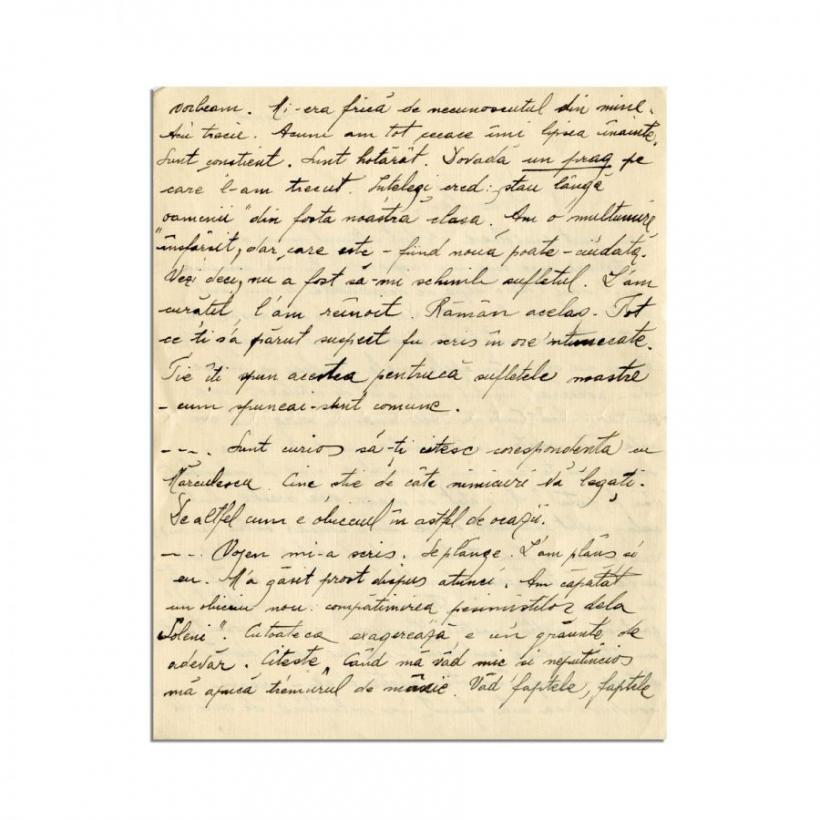 vorbeam. Mi-era frică de necunoscutul din mine.
trecie. Acum am tot ceeace îmi lipsea înainte.
Sunt conștient. Sunt hotărât. Dovadă un prag pe
care l-am trecut. Intelegi cred: stau lângă
oamenii" din fosta noastră clasă. Am o multumire
"însfârsit, dar care este - fiind nouă poate - ciudată.
Vezi deci, nu a fost să-mi schimb sufletul. L'am
curătit, l'am reînoit. Rămân acelas. Tot
ce ti s'a părut suspect fu scris în ore intunecate.
Tie îti spun acestea pentrucă sufletele noastre
- cum spuneai - sunt comune.
---. Sunt curios să-ți citesc corespondenta cu
Mărculescu. Cine stie de câte nimicuri vă legați.
De altfel cum e obiceiul în astfel de ocazii.
---. Vojen mi-a scris. Se plânge. L'am plâns si
eu. M'a găsit prost dispus atunci. Am căpătat
un obiceiu nou: compătimirea pesimistilor dela
Cutoate ca exagerează e un graunte de
adevăr. Citeste „Când mă văd mic si neputincios
mă apucă tremurul de mânie. Văd faptele, faptele